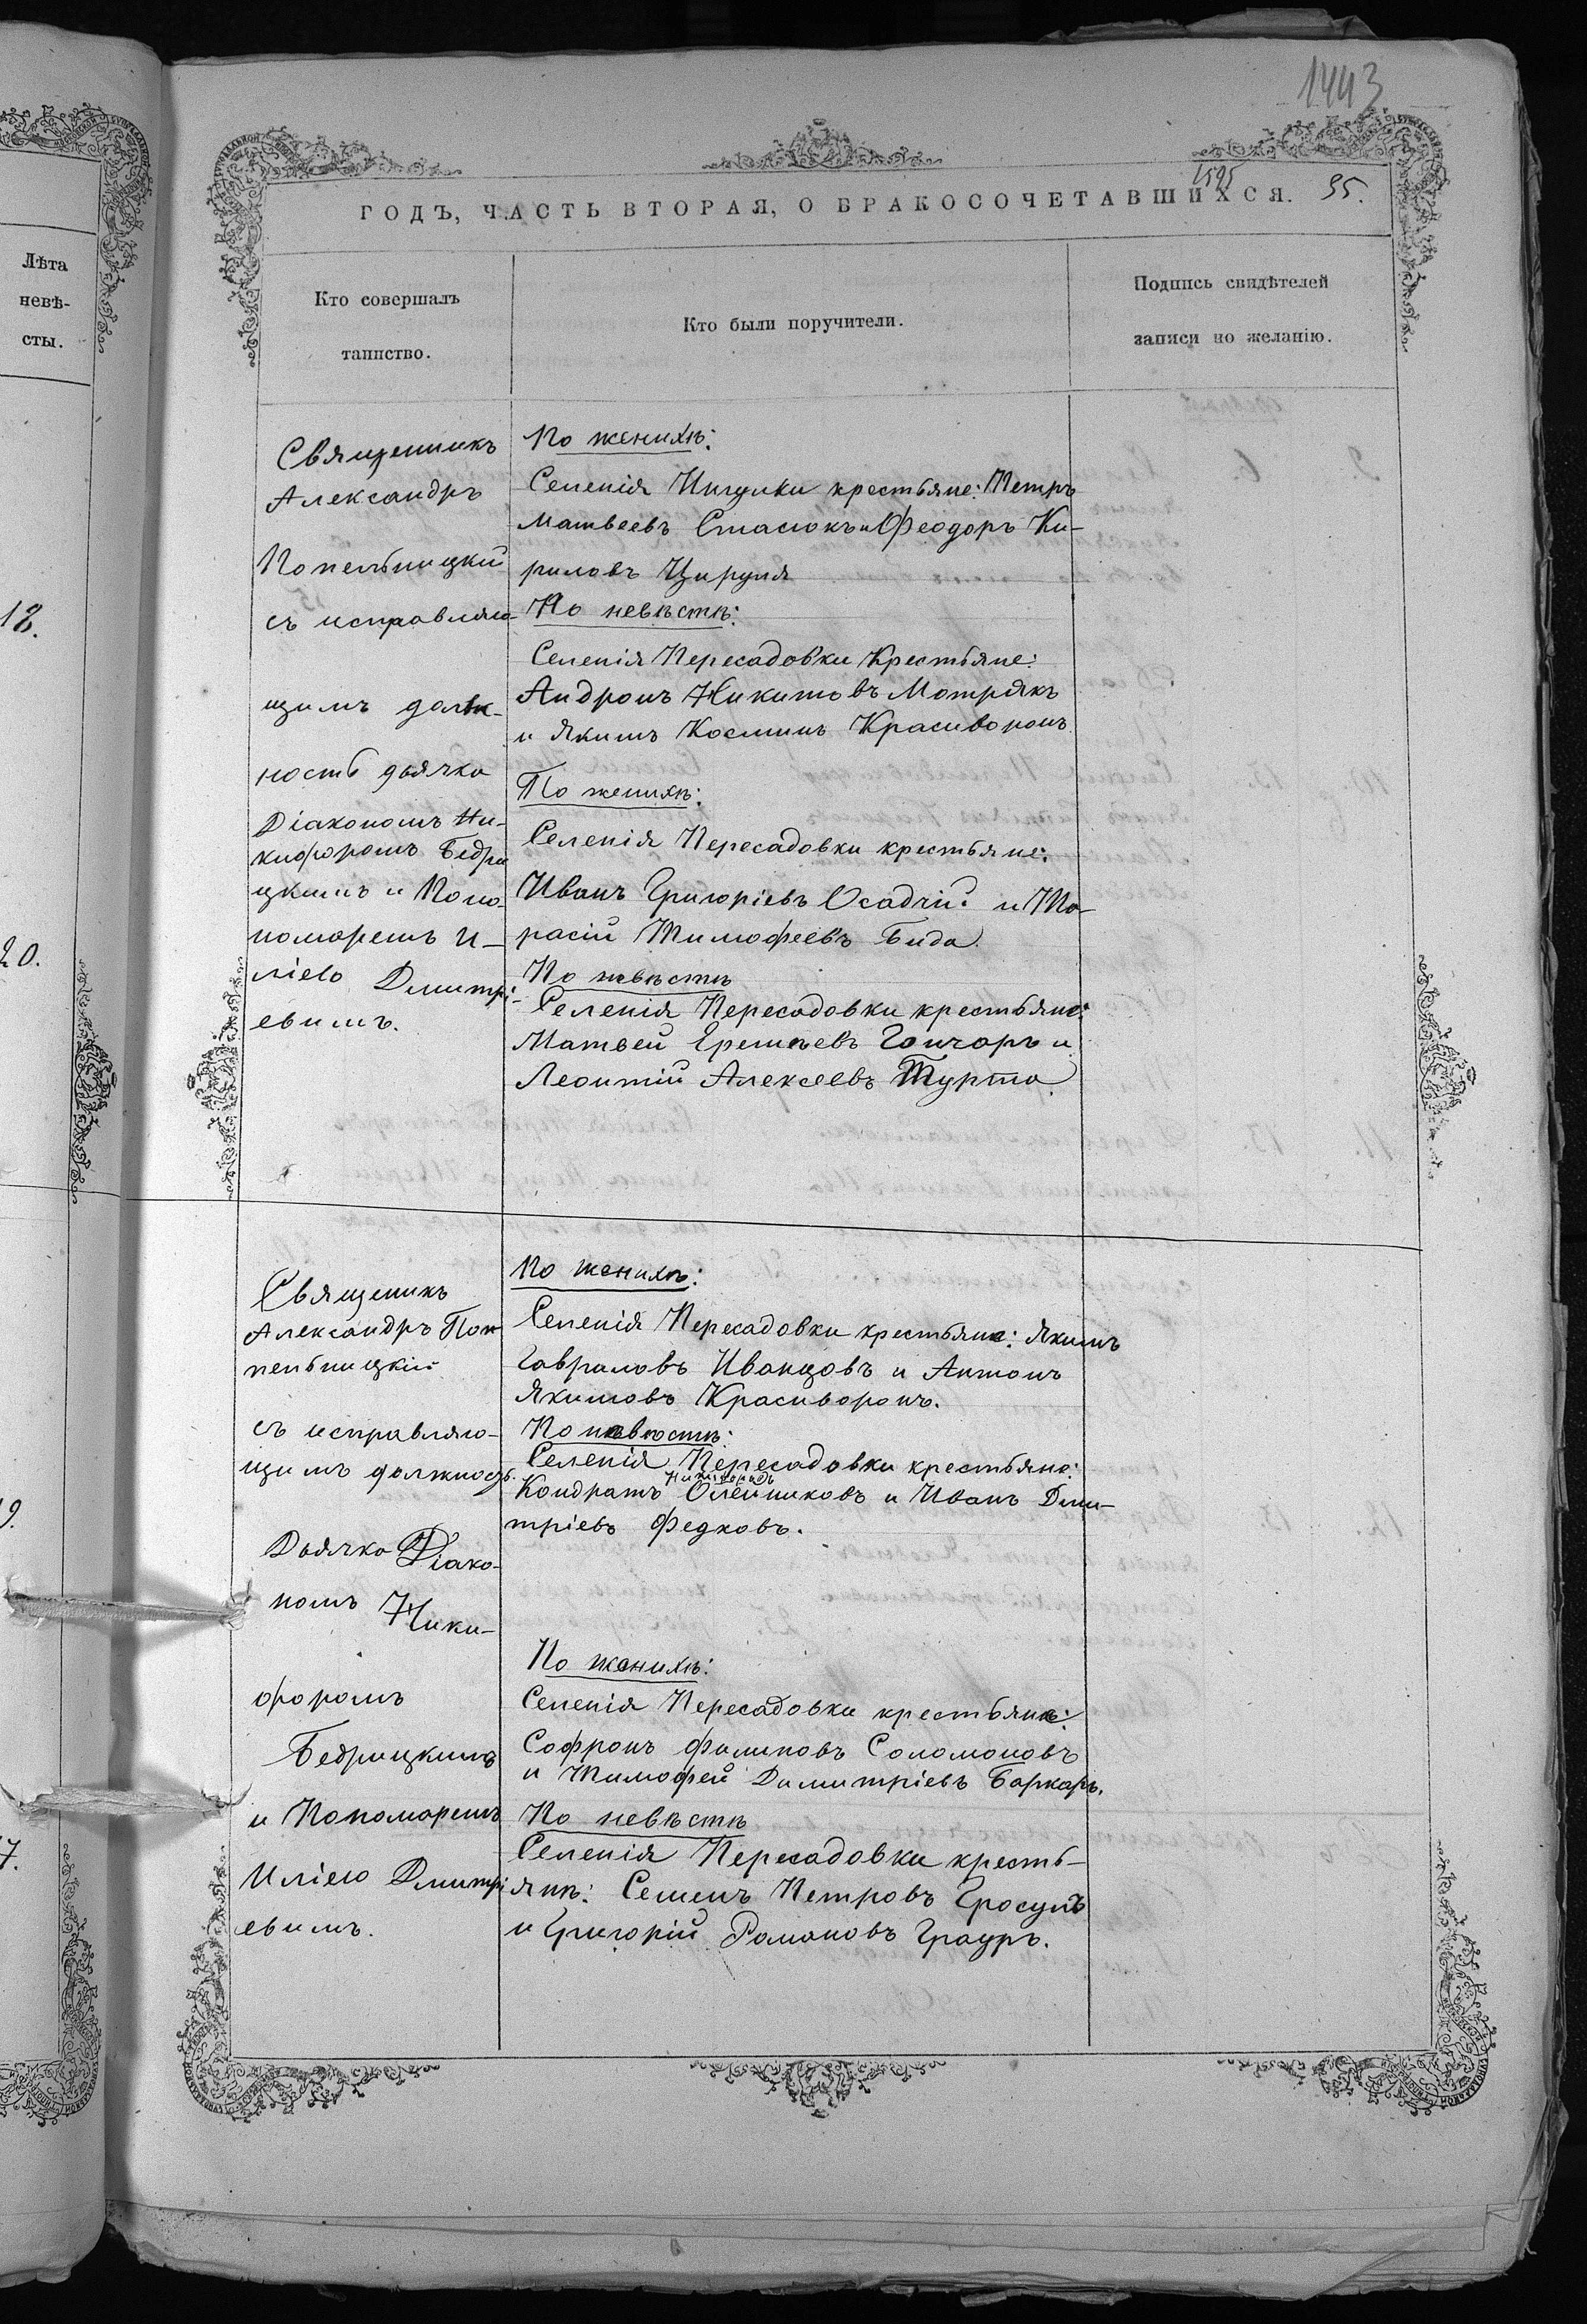 1443
1595
95.
ГОДЪ, ЧАСТЬ ВТОРАЯ, О БРАКОСОЧЕТАВШИХСЯ.
Лѣта
невѣ-
сты.
Кто совершалъ
таинство.
Кто были поручители.
Подпись свидѣтелей
записи по желанію.
18.
20.
9.
7.
Священникъ
Александръ
Попельницкій
съ исправляю-
щимъ долж-
ность дьячка
Діакономъ Ни-
кифоромъ Бедри
цкимъ и Поно-
номаремъ И-
ліею Дмитрі-
евимъ.
По женихѣ:
Селенія Ингулки крестьяне: Петръ
Матвеевъ Стасюкъ и Феодоръ Ки-
риловъ Цируля
По невѣстѣ:
Селенія Пересадовки Крестьяне:
Андронъ Никитовъ Мотрякъ
и Якимъ Косминъ Красиворонъ
По женихѣ:
Селенія Пересадовки крестьяне:
Иванъ Григоріевъ Осадчій и Та-
расій Тимофеевъ Бида.
По невѣстѣ
Селенія Пересадовки крестьяне:
Матвей Еремѣевъ Гончаръ и
Леонтій Алексеевъ Турта.
Священикъ
Александръ Поп
пельницкій
съ исправляю-
щимъ должность.
Дьячка Діако-
номъ Ники-
форомъ
Бедрицкимъ
и Пономаремъ
Иліею Дмитрі
евимъ.
По женихѣ:
Селенія Пересадовки крестьяне: Якимъ
Гавриловъ Иванцовъ и Антонъ
Якимовъ Красиворонъ.
По невѣстѣ:
Селенія Пересадовки крестьяне:
Кондратъ Олейниковъ и Иванъ Дми-
тріевъ Федковъ.
По женихѣ:
Селенія Пересадовки крестьяне:
Софронъ Филиповъ Соломоновъ
и Тимофей Димитріевъ Баркаръ.
По невѣстѣ
Селенія Пересадовки кресть-
янѣ: Семенъ Петровъ Гросулъ
и Григорій Романовъ Грауръ.